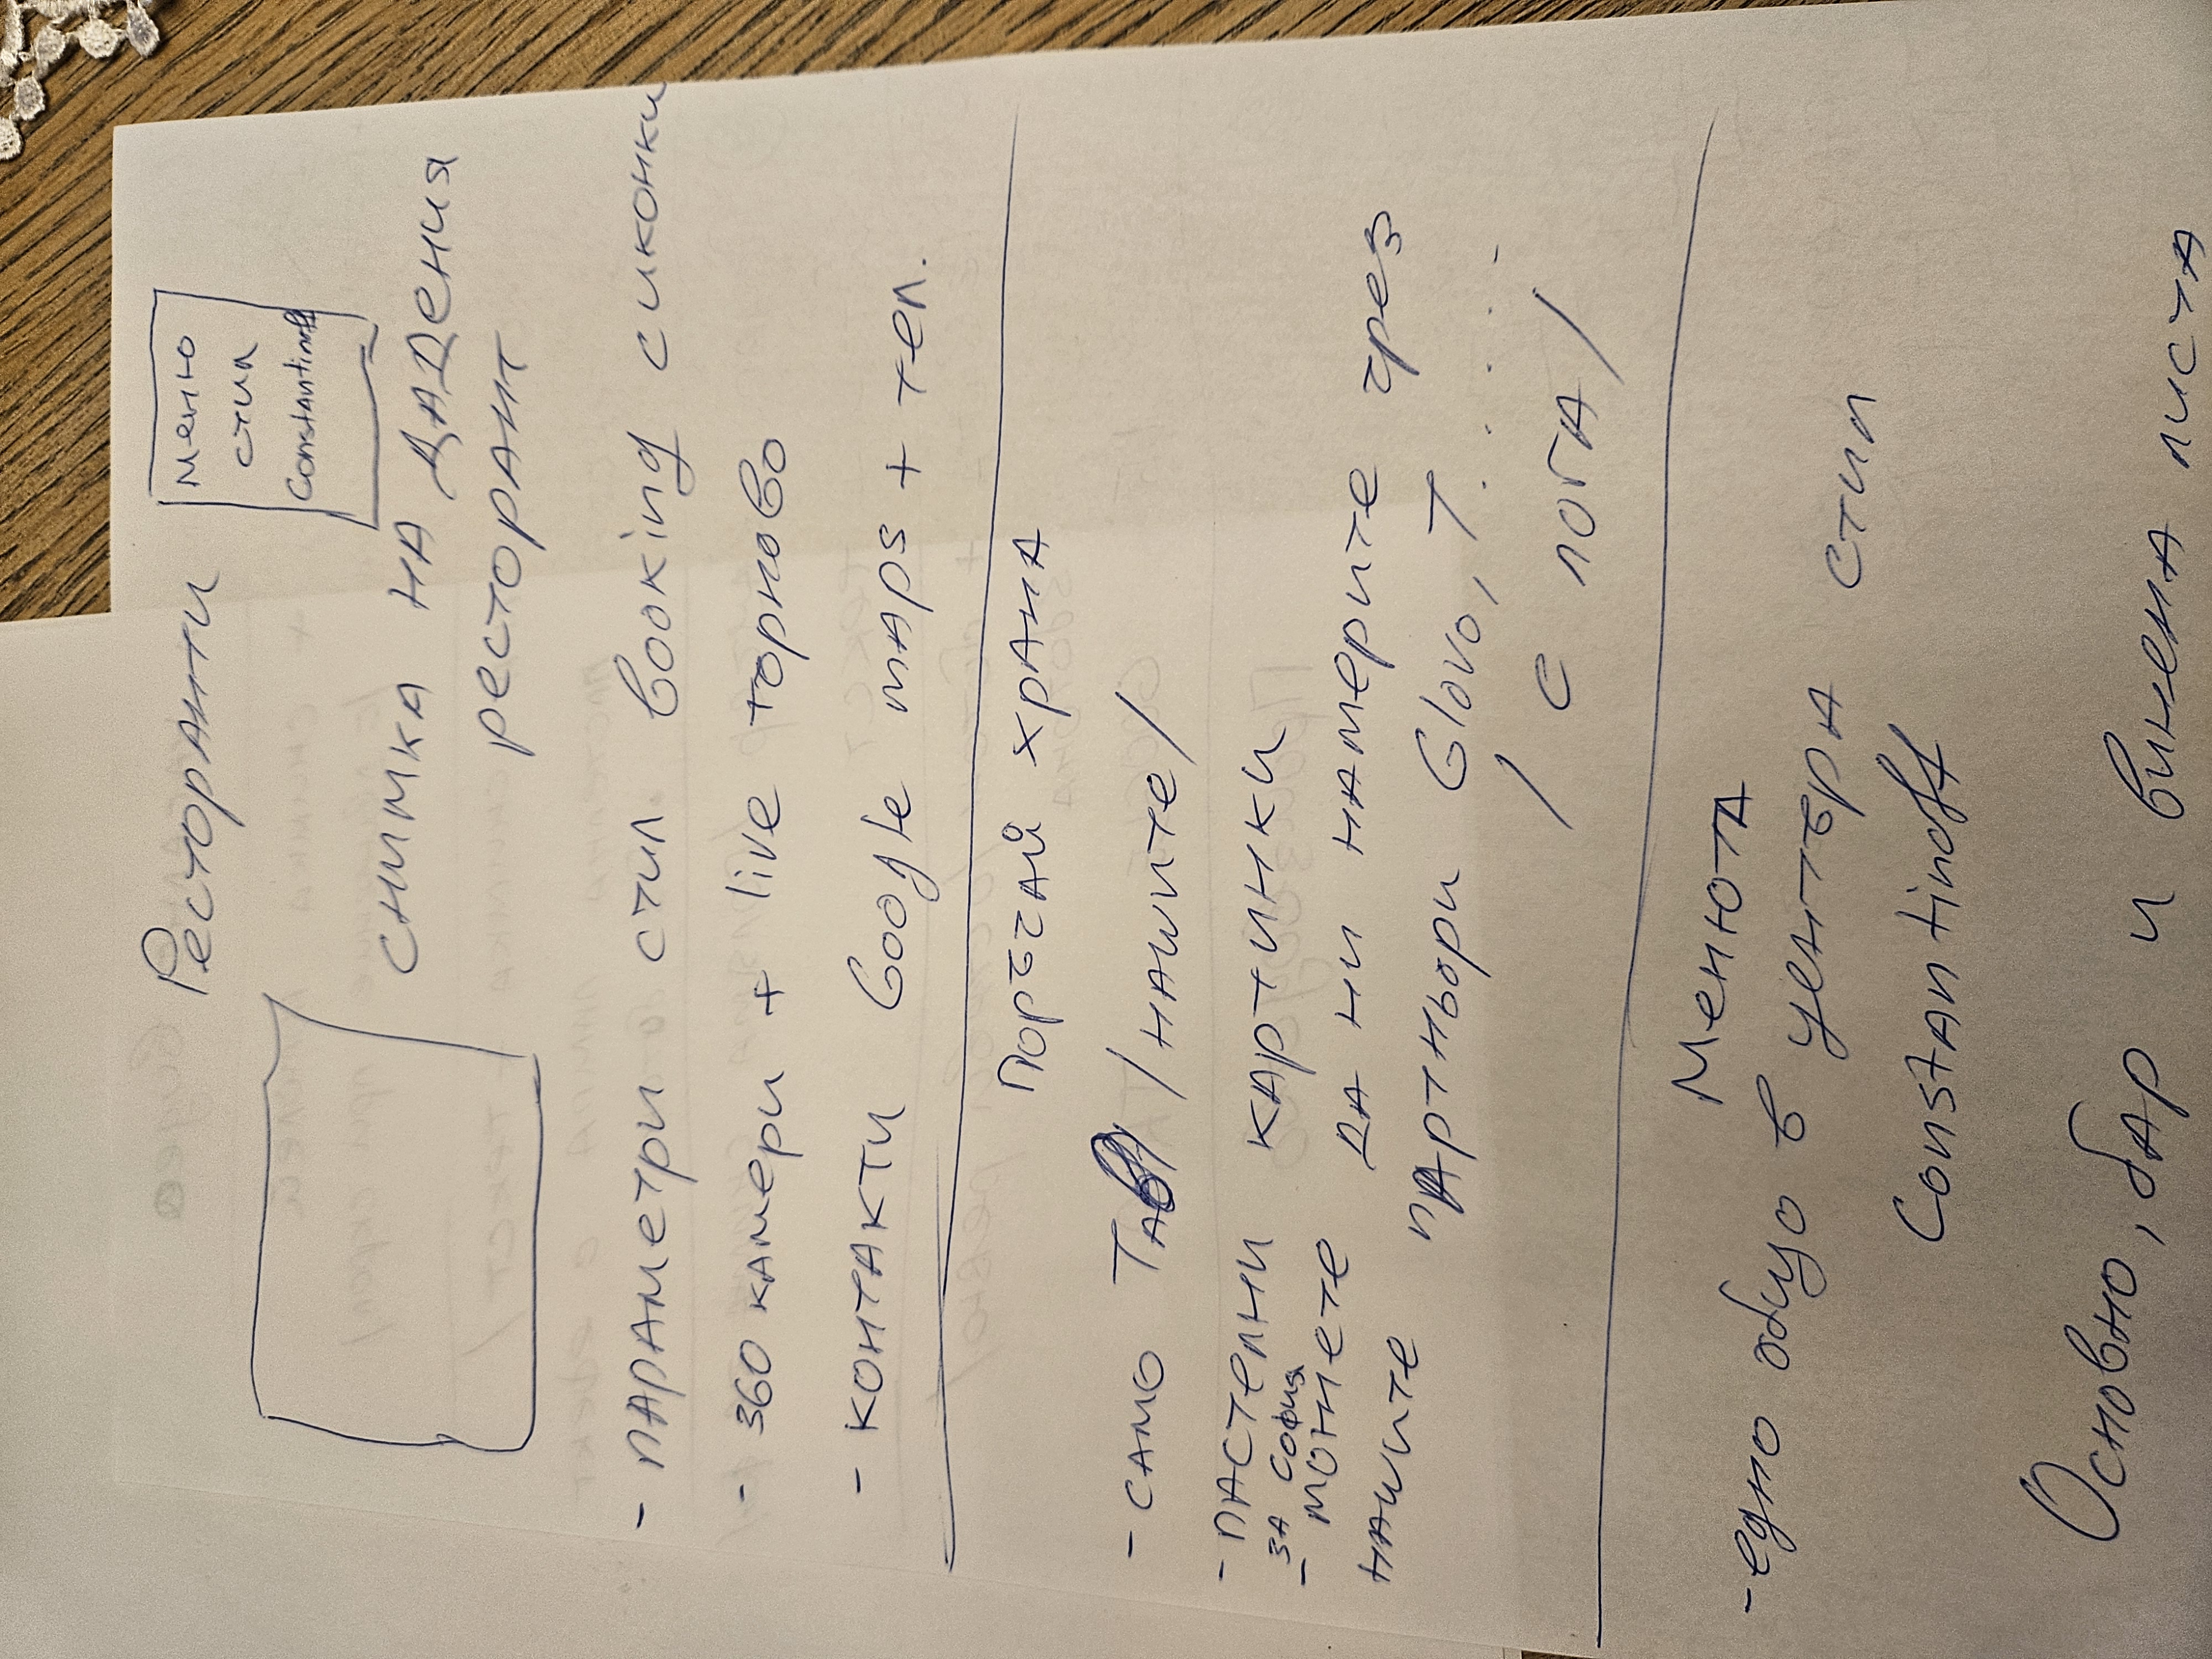 Ресторанти
Меню
стил
Constantinoff
снимка на дадения
ресторант
- параметри стил booking с иконки
- 360 камери + live торново
- контакти Google maps + тел.
Поръчай храна
- само /нашите/
- пастелни картинки
- за София
- можете да ни намерите чрез
нашите партньори Glovo, T. . . . .
/ с лога /
Менюта
- едно общо в центъра стил
Constantinoff
Основно, бар и винена листа